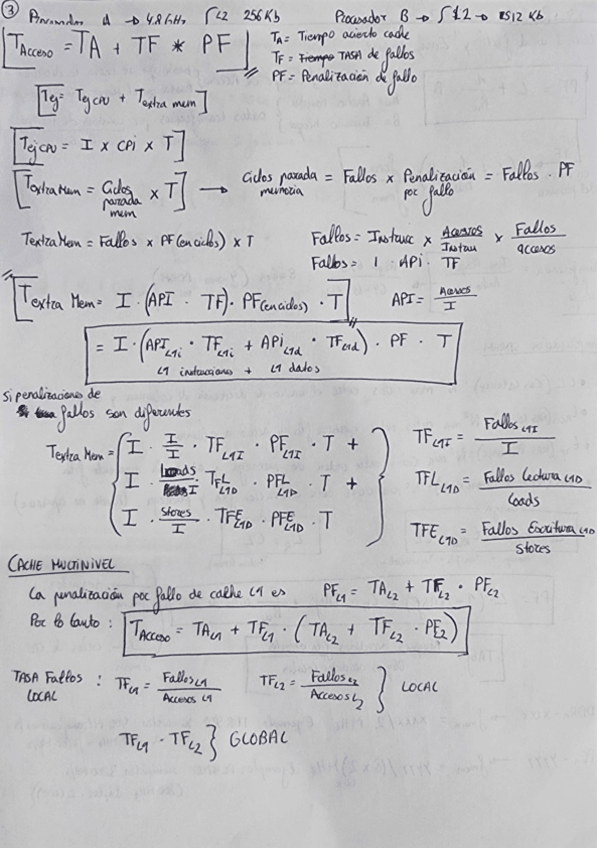 ③ Procesador A → 4.8 GHz ∫ L2 256 Kb Procesador B → ∫ L2 → 512 Kb
[T_Acceso = TA + TF * PF]
TA = Tiempo acierto cache
TF = TASA de fallos
PF = Penalización de fallo
[Tej = Tej CPU + Textra mem]
[Tej CPU = I x CPi x T]
[Textra Mem = Ciclos parada mem x T] → Ciclos parada memoria = Fallos x Penalización por fallo = Fallos · PF
Textra Mem = Fallos x PF (en ciclos) x T
Fallos = Instrucc x Accesos/Instrucc x Fallos/accesos
Fallos = I · APi · TF
[Textra Mem = I · (API · TF) · PF(en ciclos) · T] API = Accesos/I
= I · (API_L1i · TF_L1i + APi_L1d · TF_L1d) · PF · T
L1 instrucciones + L1 datos
Si penalizaciones de
fallos son diferentes
Textra Mem = { I · I/I · TF_L1I · PF_L1I · T +
I · Loads/I · TFL_L1D · PFL_L1D · T +
I · Stores/I · TFE_L1D · PFE_L1D · T }
TF_L1I = Fallos L1I/I
TFL_L1D = Fallos Lectura L1D/Loads
TFE_L1D = Fallos Escritura L1D/Stores
CACHE MULTINIVEL
La penalización por fallo de calhe L1 es PF_L1 = TA_L2 + TF_L2 · PF_L2
Por lo tanto : T_Acceso = TA_L1 + TF_L1 · (TA_L2 + TF_L2 · PF_L2)
TASA Fallos LOCAL : TF_L1 = Fallos L1/Accesos L1 TF_L2 = Fallos L2/Accesos L2 } LOCAL
TF_L1 · TF_L2 } GLOBAL